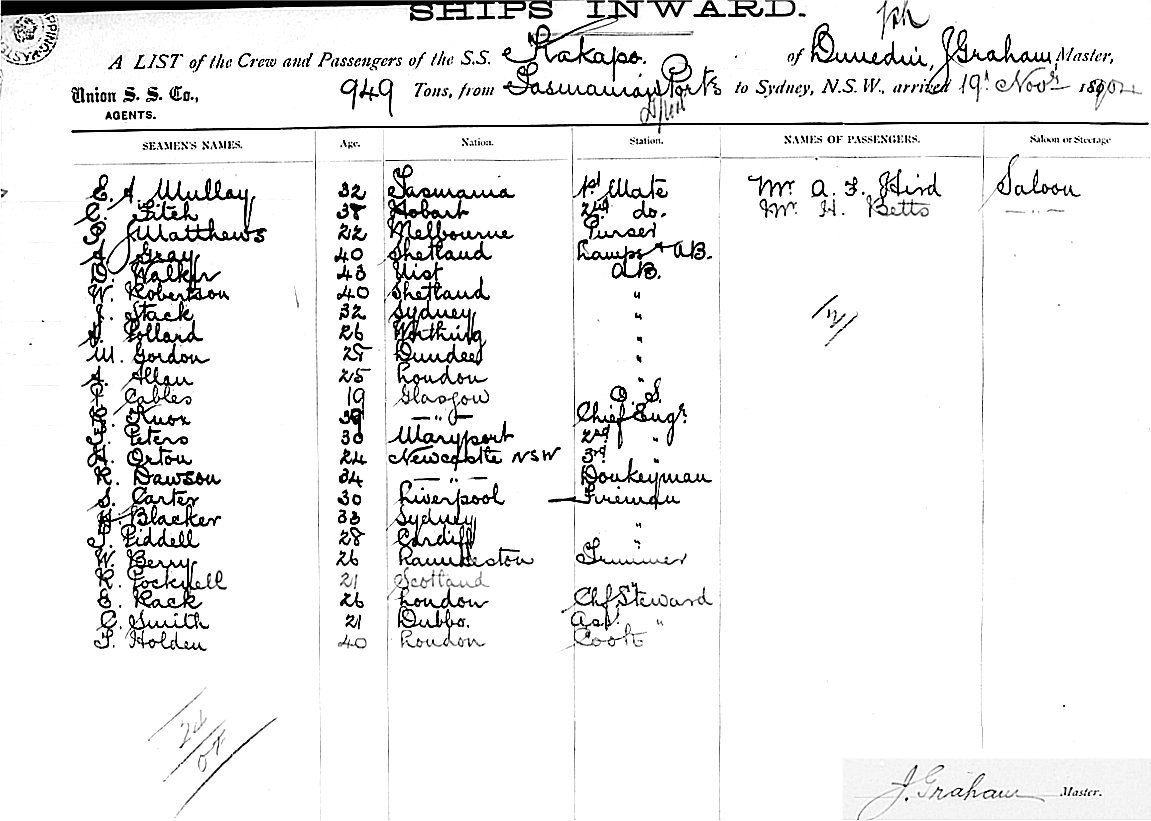 SHIPS INWARD.
A LIST of the Crew and Passengers of the S.S. Kakapo. of Dunedin, J Graham, Master,
Union S. S. Co., AGENTS. 949 Tons, from Tasmanian Ports to Sydney, N.S.W., arrived 19th Novr 1904
SEAMEN'S NAMES. Age. Nation. Station. NAMES OF PASSENGERS. Saloon or Steerage
E. A. Mullay 32 Tasmania 1st Mate Mr A. F. Hird Saloon
C. Fitch 38 Hobart 2nd do. Mr H. Betts - " -
J Matthews 22 Melbourne Purser
Gray 40 Shetland Lamps & AB.
D. Walker 43 Uist A.B.
W. Robertson 40 Shetland "
J. Stack 32 Sydney "
Pollard 26 Worthing "
W. Gordon 28 Dundee "
A. Allan 25 London "
Cables 19 Glasgow O. S.
Knox 39 - " - Chief Engr
Peters 30 Maryport 2nd "
Orton 24 Newcastle NSW 3rd "
R. Dawson 34 - " - Donkeyman
S. Carter 30 Liverpool Fireman
Blacker 33 Sydney "
J. Liddell 28 Cardiff "
W. Berry 26 Trimmer
R. 21 Scotland "
E. Rack 26 London Chf Steward
C. Smith 21 Dubbo. Asst "
T. Holden 40 London Cook
J. Graham Master.